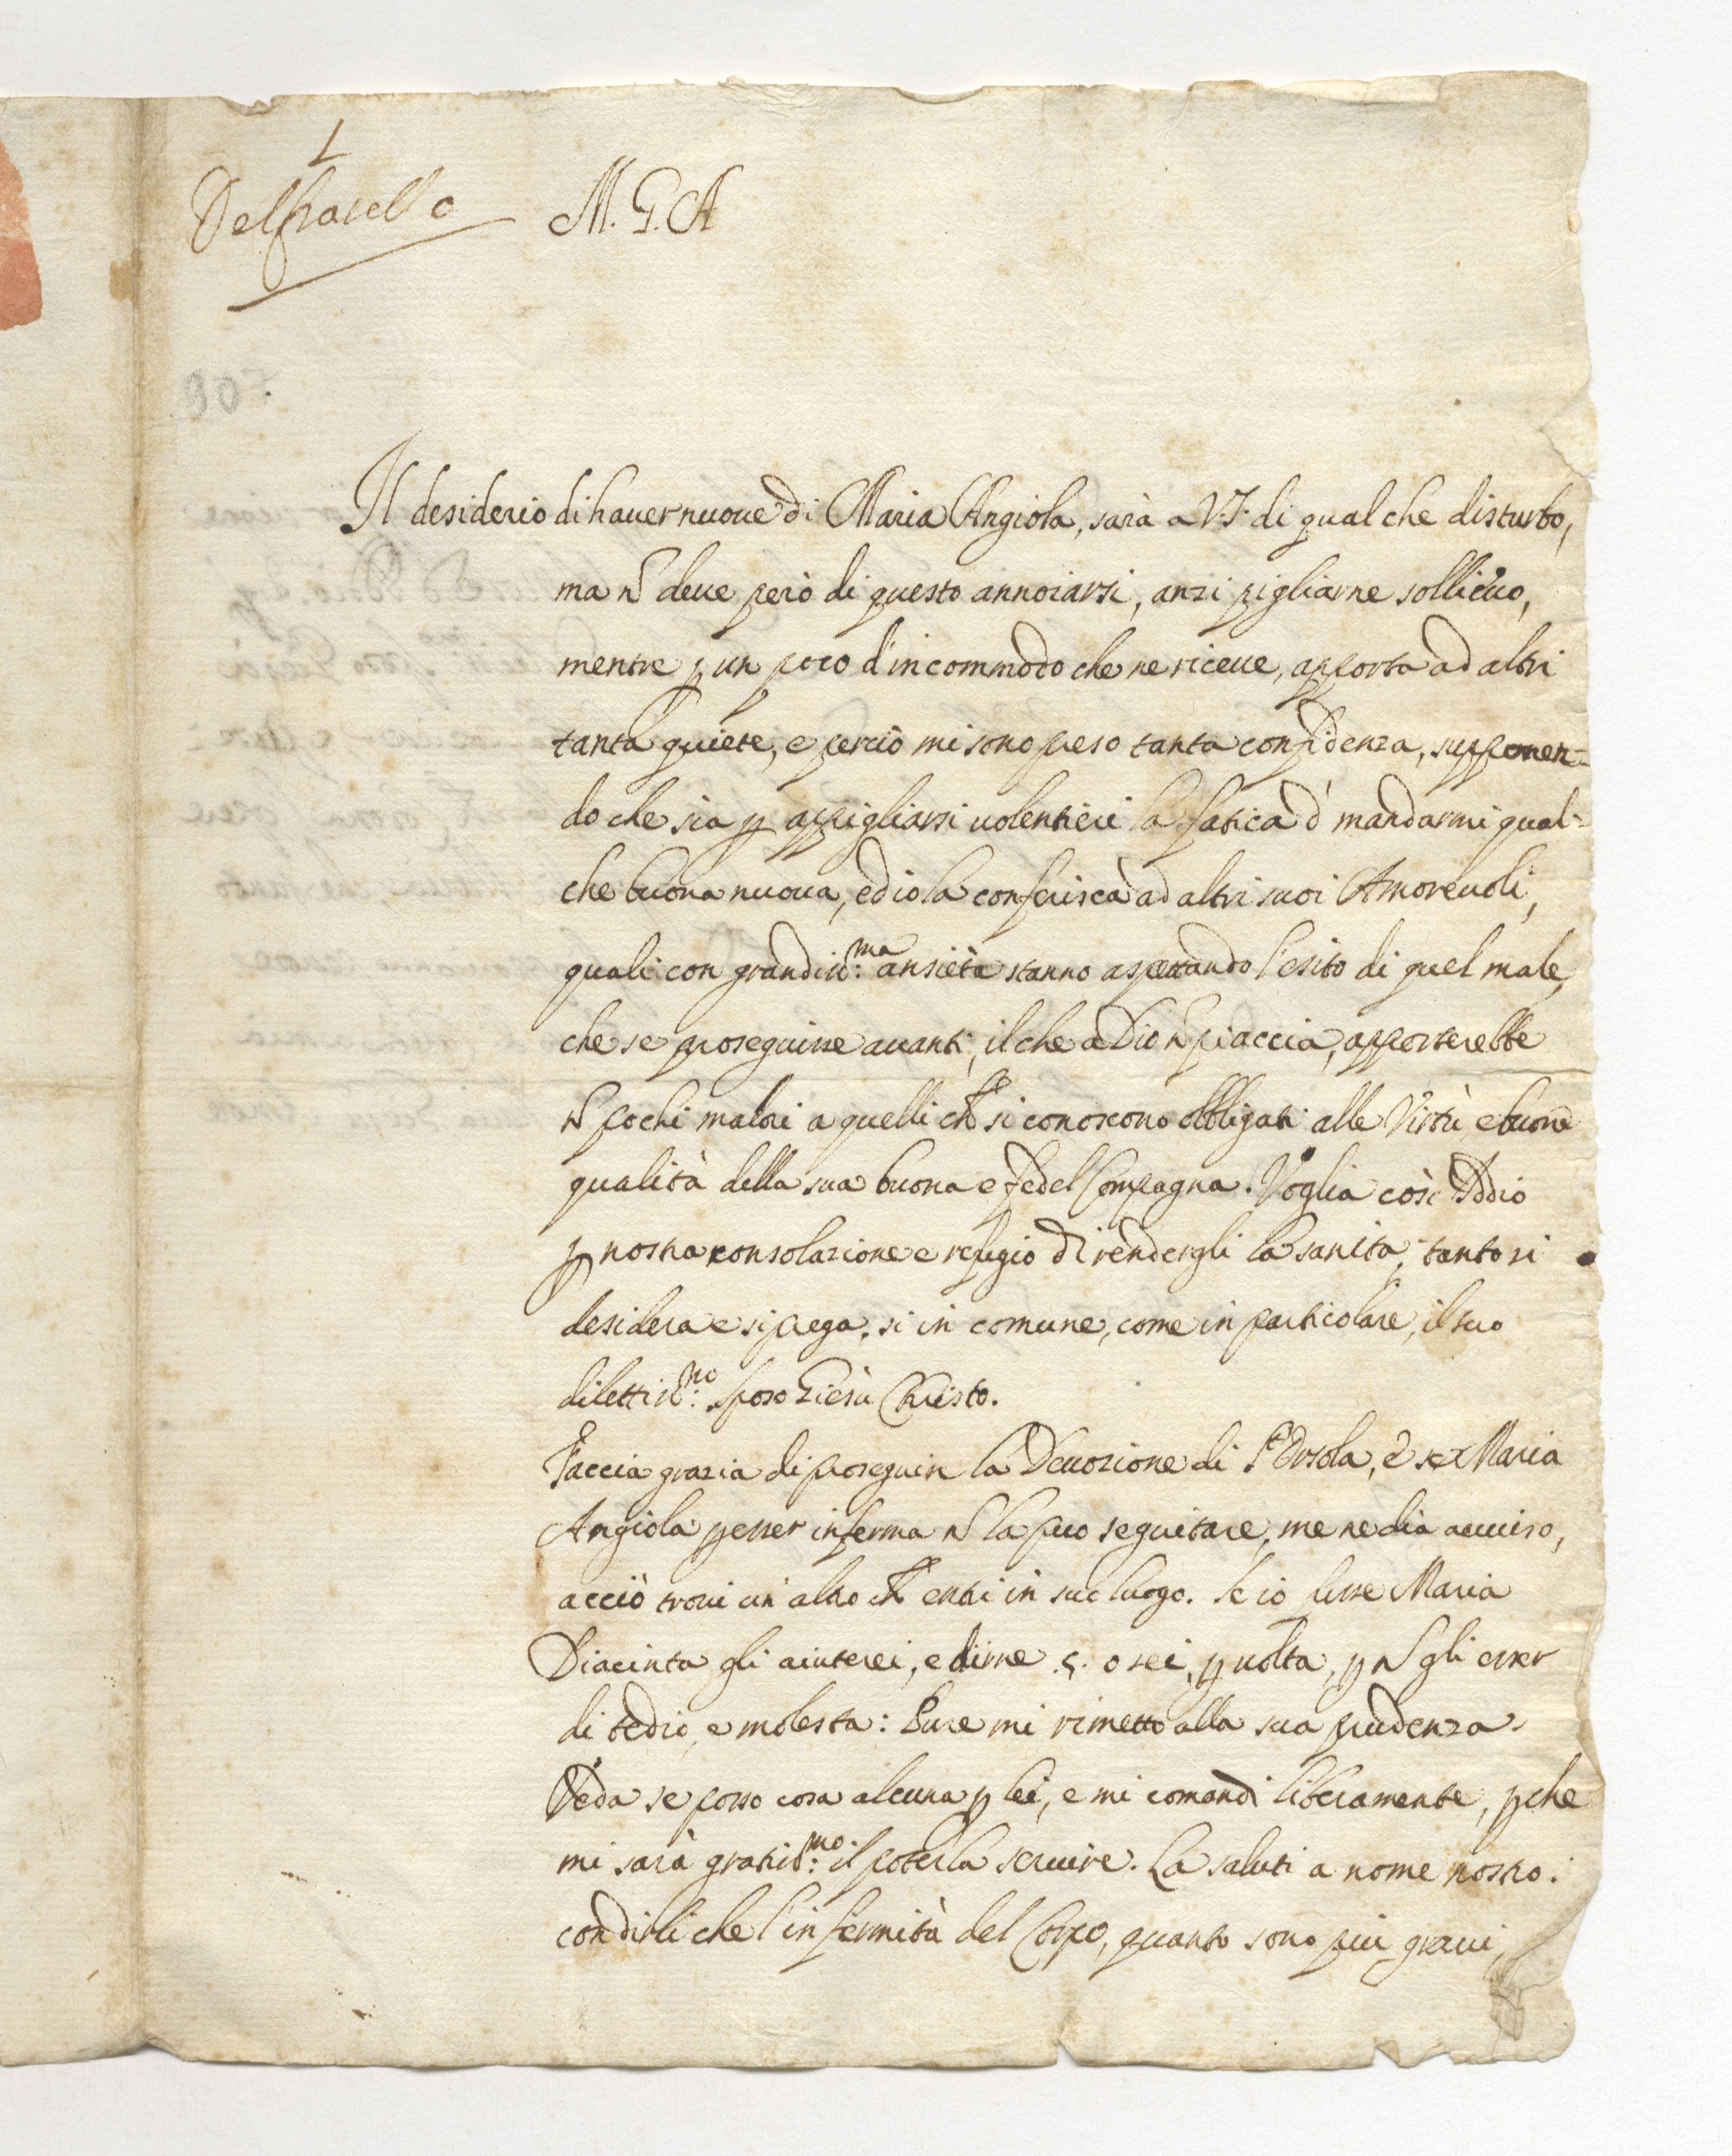 1
Del fratello
M. G. A
907.
Il desiderio di hauer nuoue di Maria Angiola, sarà a V.S. di qual che disturbo,
ma ñ deue però di questo annoiarsi, anzi pigliarne sollieuo,
mentre p un poco d'incommodo che ne riceue, apporta ad altri
tanta quiete, e perciò mi sono preso tanta confidenza, supponen=
do che sia p appigliarsi uolentieri la fatica d' mandarmi qual=
che buona nuoua, ed io la conferisca ad altri suoi Amoreuoli,
quali con grandiss:ma ansietà stanno aspettando l'esito di quel male,
che se proseguisse auanti, il che a Dio ñ piaccia, apporterebbe
ñ pochi malori a quelli ch si conoscono obbligati alle Virtù, e buone
qualità della sua buona e fedel Compagna. Voglia così Iddio
p nostra consolazione e refugio di rendergli la sanità, tanto si
desidera e si prega, si in comune, come in particolare, il suo
dilettiss:mo sposo Giesù Christo.
Faccia grazia di proseguir la Deuozione di S.ta Orsola, e se Maria
Angiola p esser inferma ñ la puo seguitare, me ne dia auuiso,
acciò troui un' altro ch entri in suo luogo. Se io fusse Maria
Diacinta gli aiuterei, e dirne .5. o sei, p uolta, p ñ gli esser
di tedio, e molesta: Pure mi rimetto alla sua prudenza.
Veda se posso cosa alcuna p lei, e mi comandi liberamente, p che
mi sarà gratiss:mo il poterla seruire. La saluti a nome nostro.
con dirli che l'infermità del Corpo, quanto sono piu graui,